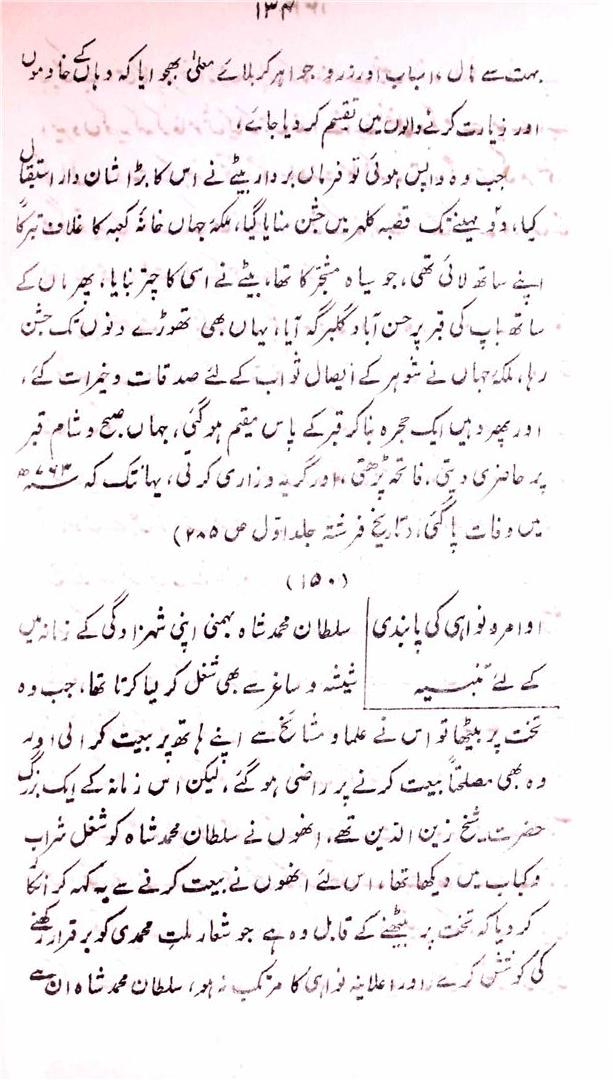 ۱۳۴
بہت سے مال، اسباب اور زر و جواہر کربلائے معلیٰ بھجوایا کہ وہاں کے خادموں
اور زیارت کرنے والوں میں تقسیم کر دیا جائے،
جب وہ واپس ہوئی تو فرماں بردار بیٹے نے اس کا بڑا شان دار استقبال
کیا، دو مہینے تک قصبہ کلہر میں جشن منایا گیا، ملکۂ جہاں خانۂ کعبہ کا غلاف تبرکاً
اپنے ساتھ لائی تھی، جو سیاہ مشجر کا تھا، بیٹے نے اسی کا چتر بنایا، پھر ماں کے
ساتھ باپ کی قبر پر حسن آباد گلبرگہ آیا، یہاں بھی تھوڑے دنوں تک جشن
رہا، ملکۂ جہاں نے شوہر کے ایصال ثواب کے لئے صدقات و خیرات کئے،
اور پھر وہیں ایک حجرہ بنا کر قبر کے پاس مقیم ہو گئی، جہاں صبح و شام قبر
پر حاضری دیتی، فاتحہ پڑھتی اور گریہ و زاری کرتی، یہانتک کہ ۷۶۳ھ
میں وفات پا گئی، (تاریخ فرشتہ جلد اول ص ۲۸۵)
(۱۵۰)
اوامر و نواہی کی پابندی
کے لئے تنبیہ
سلطان محمد شاہ بہمنی اپنی شہزادگی کے زمانہ میں
شیشہ و ساغر سے بھی شغل کر لیا کرتا تھا، جب وہ
تخت پر بیٹھا تو اس نے علما و مشائخ سے اپنے ہاتھ پر بیعت کرالی اور
وہ بھی مصلحتاً بیعت کرنے پر راضی ہو گئے، لیکن اس زمانہ کے ایک بزرگ
حضرت شیخ زین الدین تھے، انھوں نے سلطان محمد شاہ کو شغل شراب
و کباب میں دیکھا تھا، اس لئے انھوں نے بیعت کرنے سے یہ کہہ کر انکار
کر دیا کہ تخت پر بیٹھنے کے قابل وہ ہے جو شعار ملت محمدی کو برقرار رکھنے
کی کوشش کرے، اور اعلانیہ نواہی کا مرتکب نہ ہو، سلطان محمد شاہ ان سے